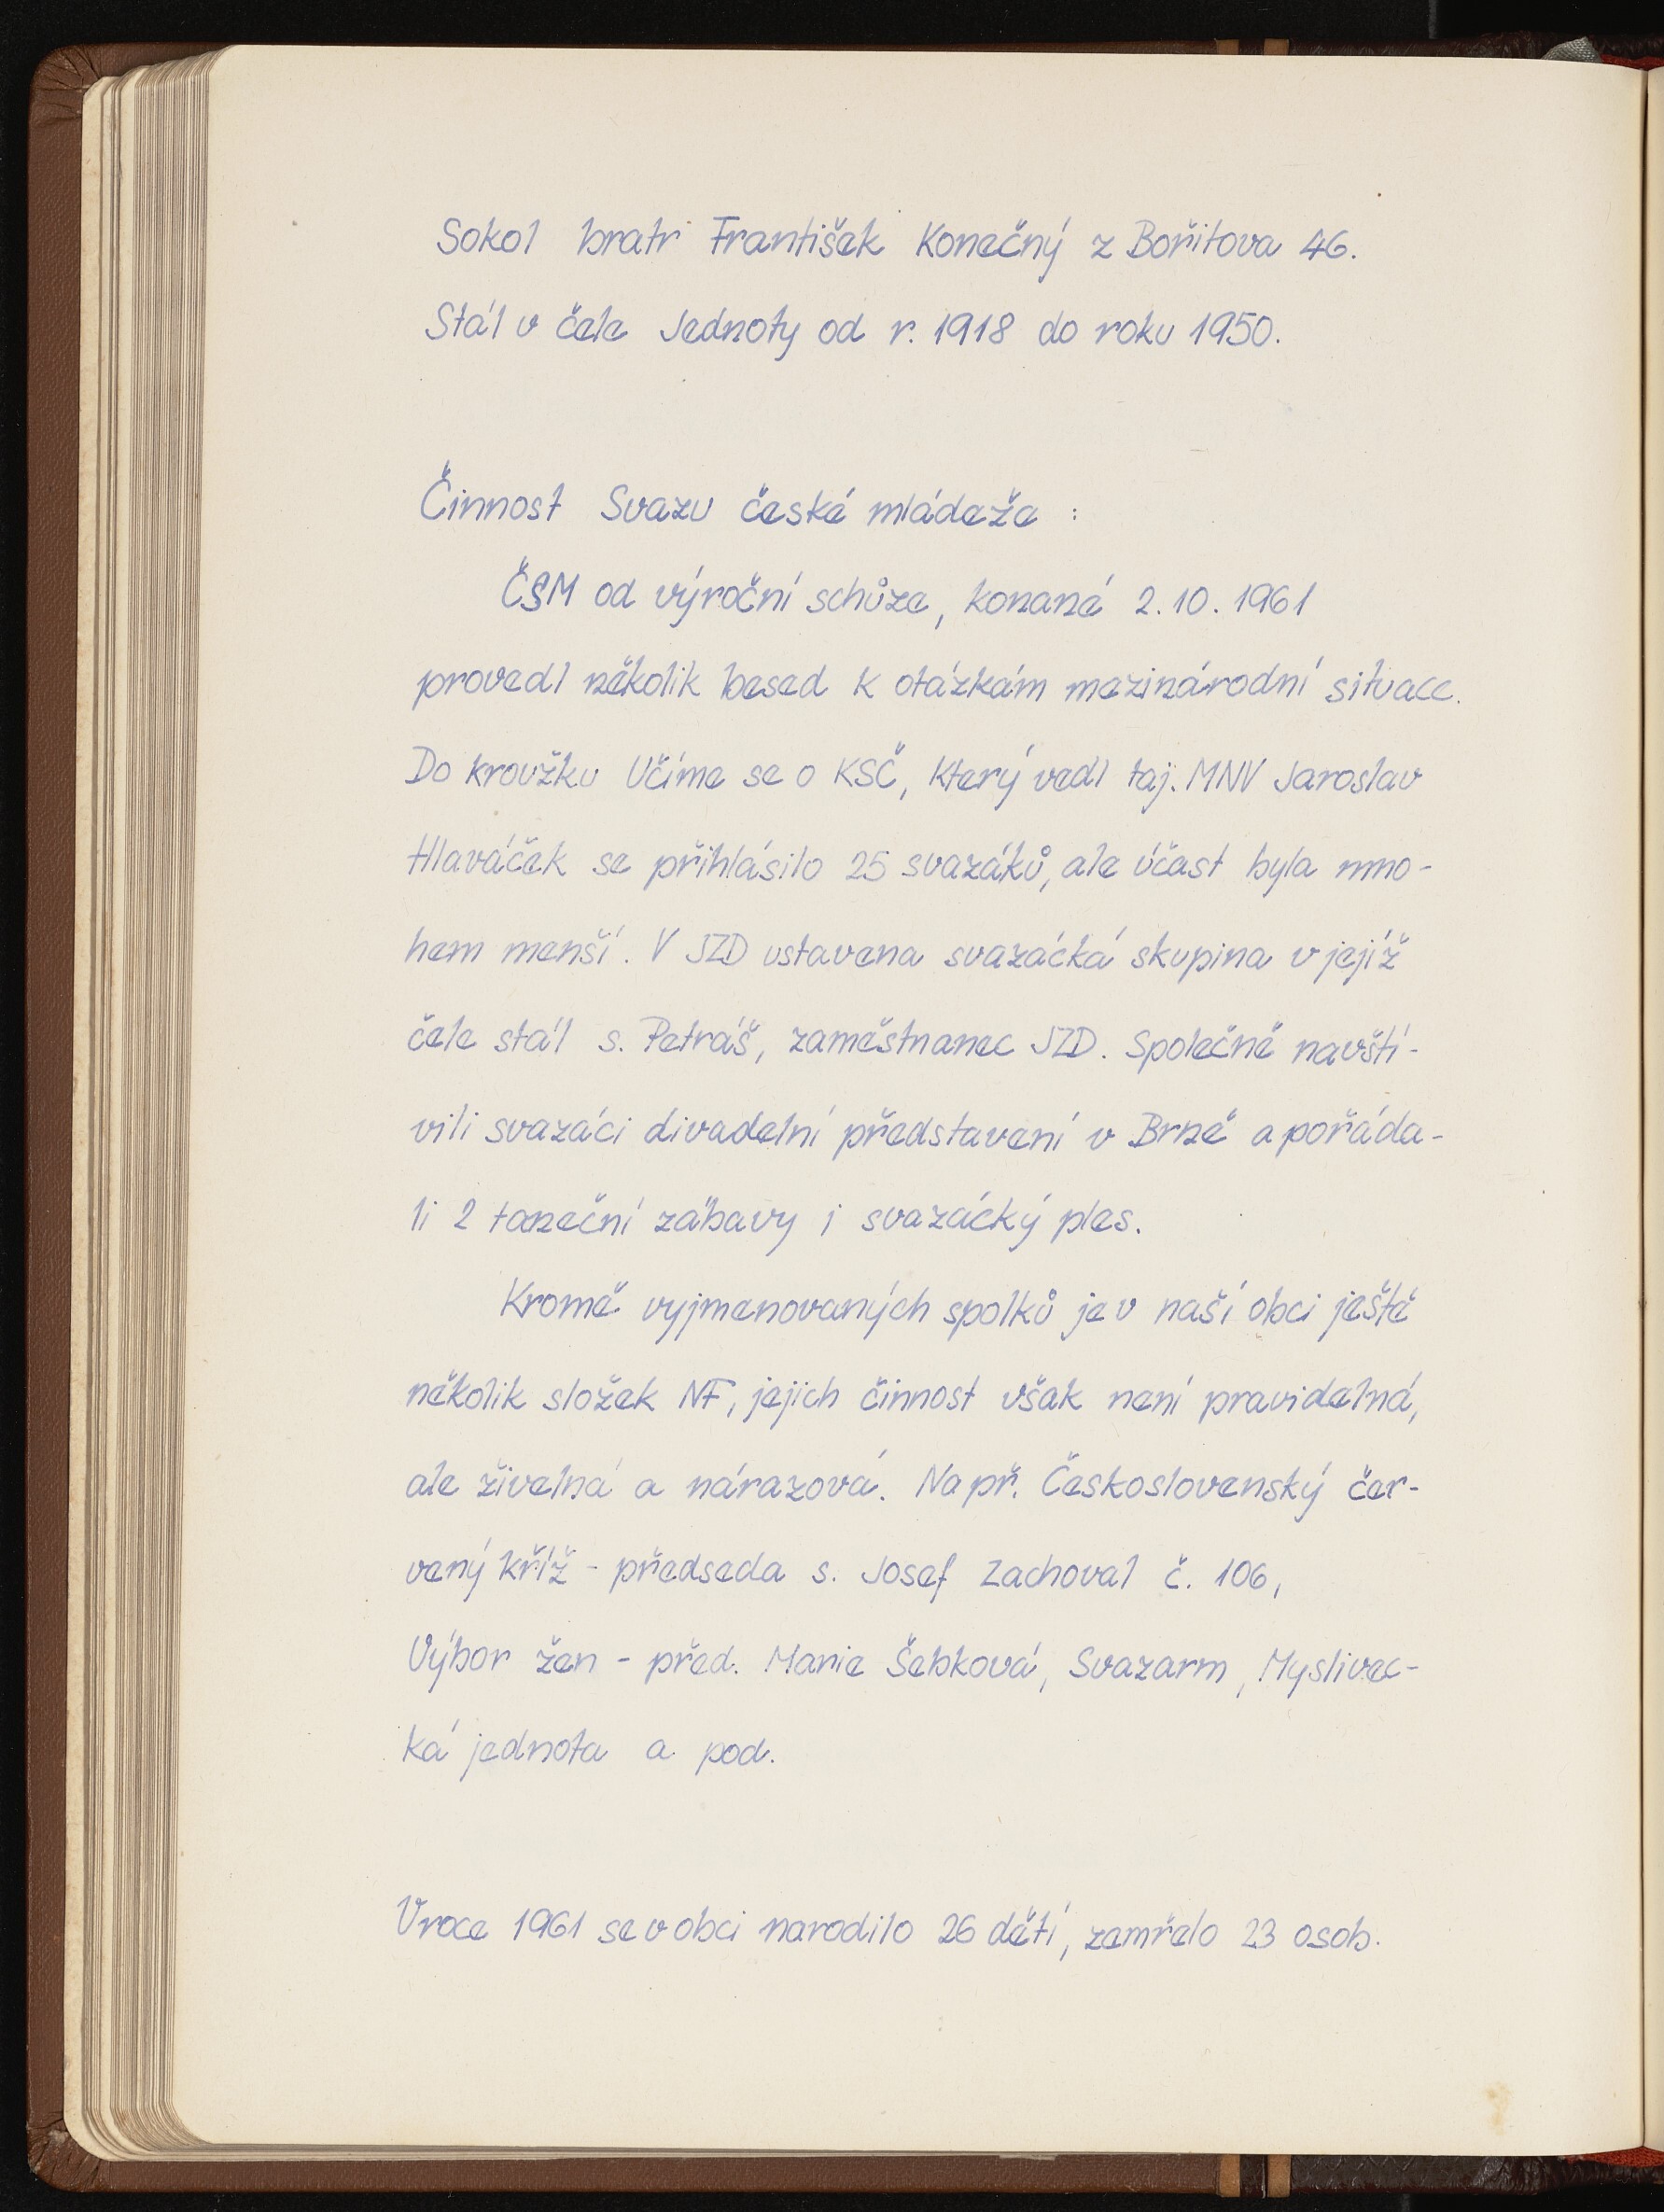 Sokol bratr František Konečný z Bořitova 46.
Stál v čele Jednoty od r. 1918 do roku 1950.
Činnost Svazu české mládeže :
ČSM od výroční schůze, konané 2.10.1961
provedl několik besed k otázkám mezinárodní situace.
Do kroužku Učíme se o KSČ, který vedl taj. MNV Jaroslav
Hlaváček se přihlásilo 25 svazáků, ale účast byla mno-
hem menší. V JZD ustavena svazácká skupina v jejíž
čele stál s. Petráš, zaměstnanec JZD. Společně navští-
vili svazáci divadelní představení v Brně a pořáda-
li 2 taneční zábavy i svazácký ples.
Kromě vyjmenovaných spolků je v naší obci ještě
několik složek NF, jejich činnost však není pravidelná,
ale živelná a nárazová. Např. Československý čer-
vený kříž - předseda s. Josef Zachoval č. 106,
Výbor žen - před. Marie Šebková, Svazarm, Myslivec-
ká jednota a pod.
V roce 1961 se v obci narodilo 26 dětí, zemřelo 23 osob.